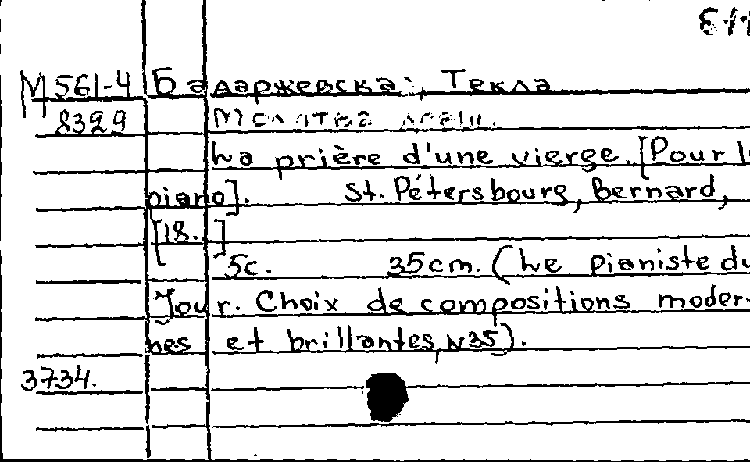 M561-4 Бадаржевска, Текла
8329
La prière d'une vierge. [Pour le
piano]. St. Pétersbourg, Bernard,
[18. ]
5c. 35cm. (Le pianiste du
Jour. Choix de compositions moder-
nes et brillantes, N35).
3734.